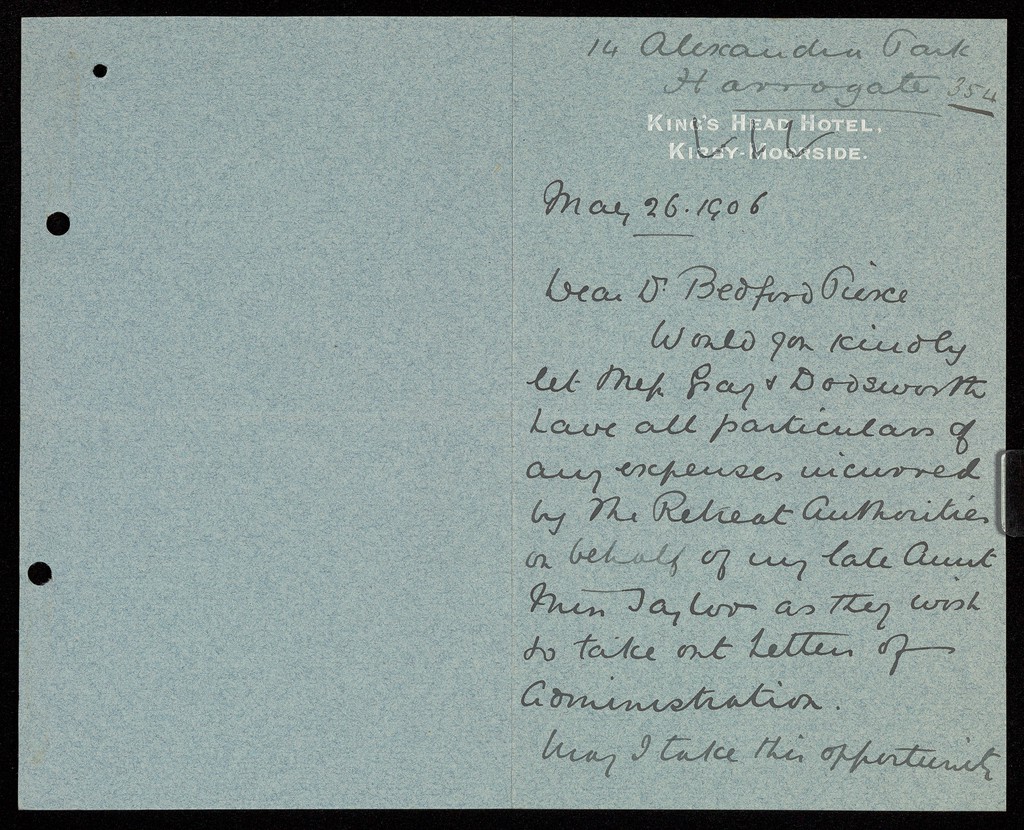 14 Alexandra Park
Harrogate 354
KING'S HEAD HOTEL,
KIRBY-MOORSIDE.
May 26. 1906
Dear Dr Bedford Pierce
Would you kindly
let Mess Gray & Dodsworth
have all particulars of
any expenses incurred
by The Retreat Authorities
on behalf of my late Aunt
Miss Taylor as they wish
to take out Letters of
Administration.
May I take this opportunity